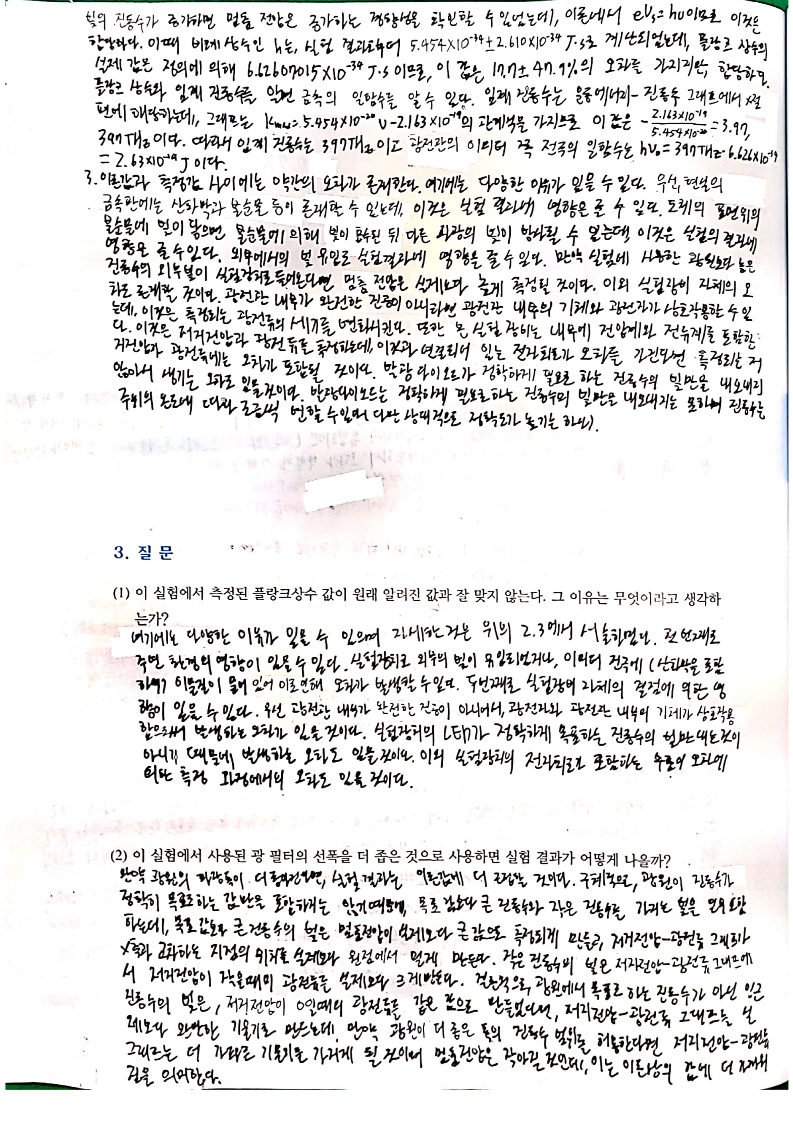 빛의 진동수가 증가하면 멈춤 전압은 증가하는 경향성을 확인할 수 있었는데, 이론에서 eVs=hν이므로 이것은
합당하다. 이때 비례상수인 h는, 실험 결과로부터 5.454×10⁻³⁴±2.610×10⁻³⁴ J·s로 계산되었는데, 플랑크 상수의
실제 값은 정의에 의해 6.62607015×10⁻³⁴ J·s 이므로, 이 값은 17.7±47.9%의 오차를 가지지만, 합당하다.
플랑크 상수와 임계 진동수를 알면 금속의 일함수를 알 수 있다. 임계 진동수는 운동에너지-진동수 그래프에서 x절
편에 해당하는데, 그래프는 Kmax=5.454×10⁻²⁰ν-2.163×10⁻¹⁹의 관계식을 가지므로 이 값은 -2.163×10⁻¹⁹/5.454×10⁻²⁰=3.97,
397THz이다. 따라서 임계 진동수는 397THz이고 광전관의 이미터 쪽 전극의 일함수는 hν₀=397THz·6.626×10⁻³⁴
=2.63×10⁻¹⁹ J이다.
3. 이론값과 측정값 사이에는 약간의 오차가 존재한다. 여기에는 다양한 이유가 있을 수 있다. 우선, 현실의
금속판에는 산화막과 불순물 등이 존재할 수 있는데, 이것은 실험 결과에 영향을 준 수 있다. 도체의 표면위의
불순물에 빛이 닿으면 불순물에 의해 빛이 흡수된 뒤 다른 파장의 빛이 방사될 수 있는데, 이것은 실험의 결과에
영향을 줄 수 있다. 외부에서의 빛 유입도 실험결과에 영향을 줄 수 있다. 만약 실험에 사용한 광원보다 높은
진동수의 외부빛이 실험장치로 들어온다면, 멈춤 전압은 실제보다 높게 측정될 것이다. 이외 실험장비 자체의 오
차도 존재할 것이다. 광전관 내부가 완전한 진공이 아니라면 광전관 내부의 기체와 광전자가 상호작용할 수 있
는데, 이것은 측정되는 광전류의 세기를 변화시킨다. 또한 본 실험 장비는 내부에 전압계와 전류계를 포함한
다. 이것은 저지전압과 광전류를 측정하는데, 이것과 연결되어 있는 전자회로가 오차를 가진다면 측정되는 저
지전압과 광전류에는 오차가 포함될 것이다. 발광 다이오드가 정확하게 필요로 하는 진동수의 빛만을 내보내지
않아서 생기는 오차도 있을 것이다. 발광다이오드는 정확하게 필요로하는 진동수의 빛만을 내보내지는 못하며 진동수는
주위의 온도에 따라 조금씩 변할 수 있다(다만 상대적으로 정확도가 높기는 하다).
3. 질 문
(1) 이 실험에서 측정된 플랑크상수 값이 원래 알려진 값과 잘 맞지 않는다. 그 이유는 무엇이라고 생각하
는가?
여기에는 다양한 이유가 있을 수 있으며 자세한 것은 위의 2.3에서 서술하였다. 첫 번째로
주변 환경의 영향이 있을 수 있다. 실험장치로 외부의 빛이 유입되었거나, 이미터 전극에 (산화막을 포함
하여) 이물질이 묻어 있어 이로 인해 오차가 발생할 수 있다. 두번째로 실험장비 자체의 결점에 의한 영
향이 있을 수 있다. 우선 광전관 내부가 완전한 진공이 아니어서, 광전자와 광전관 내부의 기체가 상호작용
함으로써 발생하는 오차가 있을 것이다. 실험장치의 LED가 정확하게 목표하는 진동수의 빛만 내는것이
아니기 때문에 발생하는 오차도 있을 것이다. 이외 실험장치의 전자회로가 포함하는 오차에
의한 측정 과정에서의 오차도 있을 것이다.
(2) 이 실험에서 사용된 광 필터의 선폭을 더 좁은 것으로 사용하면 실험 결과가 어떻게 나올까?
만약 광원의 더 한다면, 실험 결과는 이론값에 더 것이다. 구체적으로, 광원이 진동수가
정확히 목표로하는 값만을 포함하지는 않기 때문에, 목표 값보다 큰 진동수와 작은 진동수를 가지는 빛을 모두 포함
하는데, 목표 값보다 큰 진동수의 빛은 멈춤전압이 실제보다 큰 값으로 측정되게 만들고, 저지전압-광전류 그래프가
x축과 교차하는 지점의 위치를 실제보다 원점에서 멀게 만든다. 작은 진동수의 빛은 저지전압-광전류 그래프에
서 저지전압이 작을때의 광전류를 실제보다 크게 만든다. 결론적으로, 광원에서 목표로 하는 진동수가 아닌 인근
진동수의 빛은, 저지전압이 0일때의 광전류를 같은 값으로 만들었다면, 저지전압-광전류 그래프를 실
제보다 완만한 기울기로 만드는데, 만약 광원이 더 좁은 폭의 진동수 범위를 허용한다면 저지전압-광전류
그래프는 더 가파른 기울기를 가지게 될 것이며 멈춤전압은 작아질 것인데, 이는 이론상의 값에 더
짐을 의미한다.